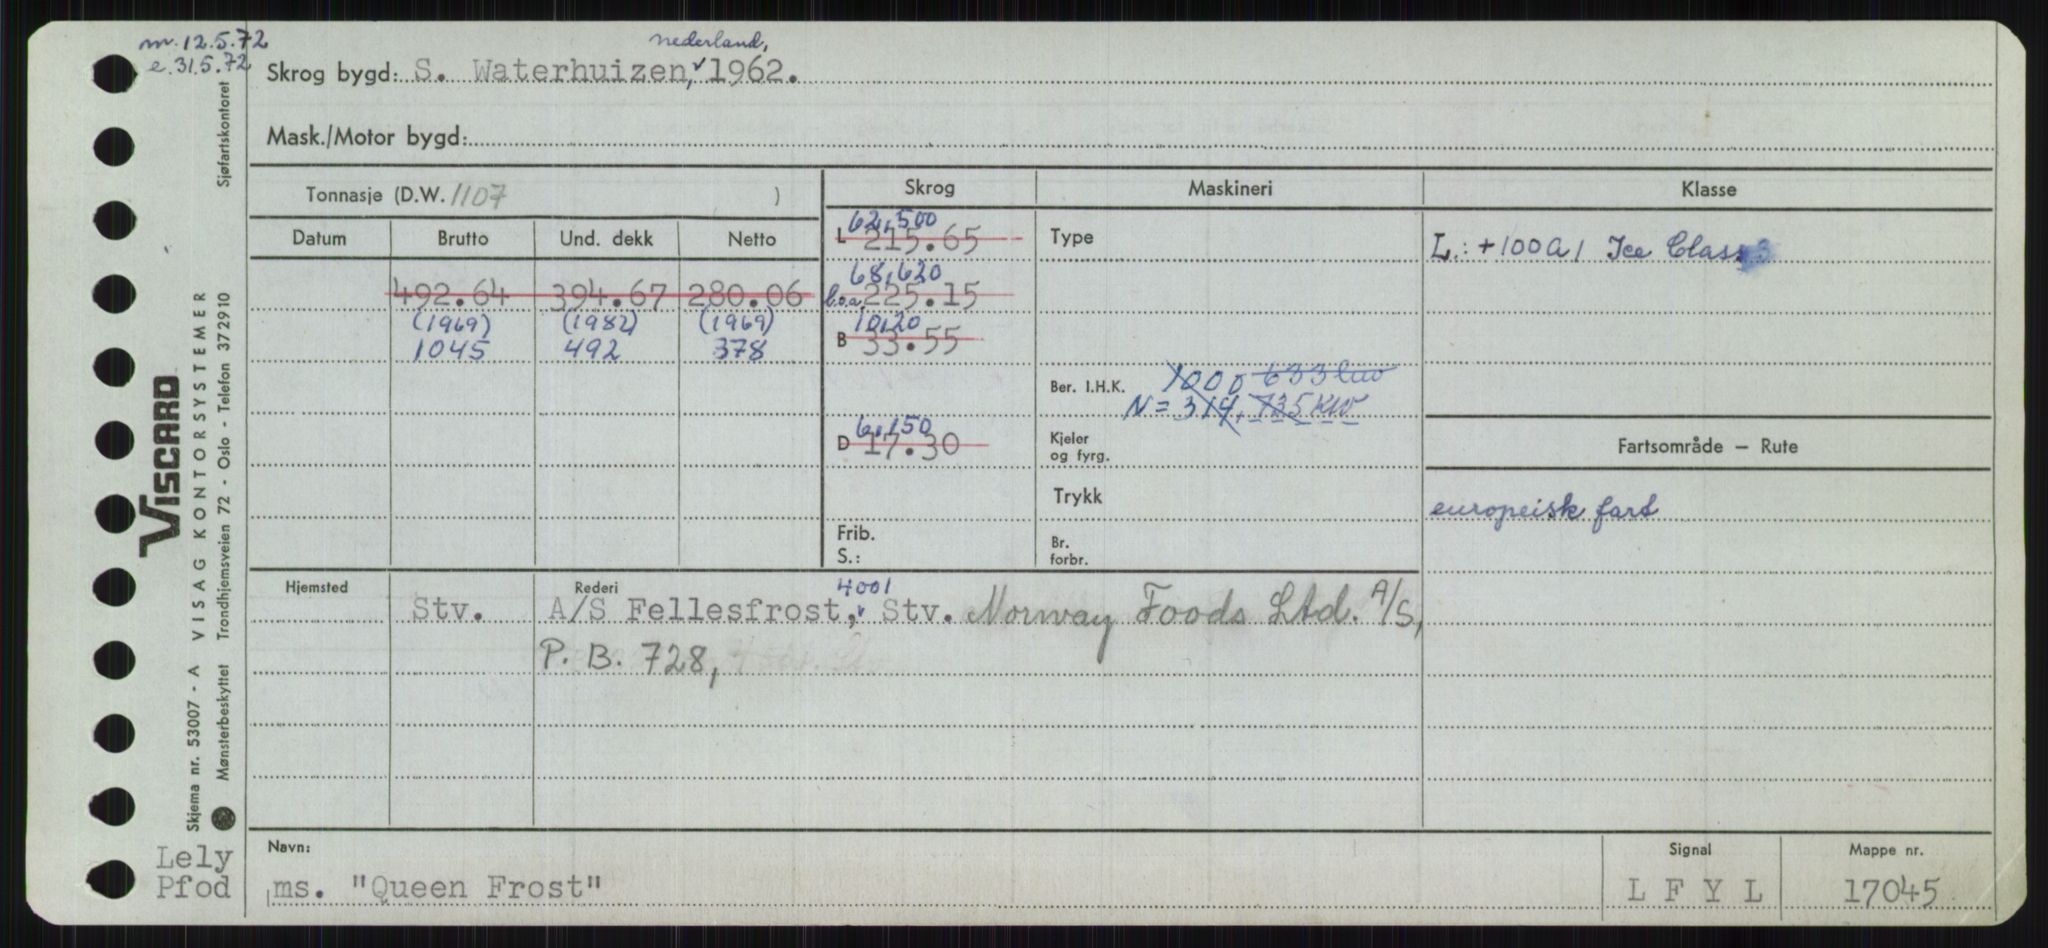 m. 12.5.72
e. 31.5.72
nederland,
Skrog bygd: S. Waterhuizen, v 1962.
Mask./Motor bygd:
Tonnasje (D.W. 1107 )
Skrog
Maskineri
Klasse
Datum
Brutto
Und. dekk
Netto
62,500
L 215.65
Type
L.: +100A1 Ice Class 3
492.64
394.67
280.06
68,620
l.o.a. 225.15
(1969)
(1982)
(1969)
1045
492
378
10,20
B 33.55
Ber. I.H.K. 1000, 633 kw
N = 314, 735 KW
6,150
D 17.30
Kjeler
og fyrg.
Fartsområde — Rute
Trykk
europeisk fart
Frib.
S.:
Br.
forbr.
Hjemsted
Rederi
4001
Stv.
A/S Fellesfrost, v Stv. Norway Foods Ltd. A/S,
P. B. 728,
Navn:
ms. "Queen Frost"
Signal
L F Y L
Mappe nr.
17045
Lely
Pfod
VISCARD
Skjema nr. 53007 - A VISAG KONTORSYSTEMER
Mønsterbeskyttet Trondhjemsveien 72 - Oslo - Telefon 372910 Sjøfartskontoret